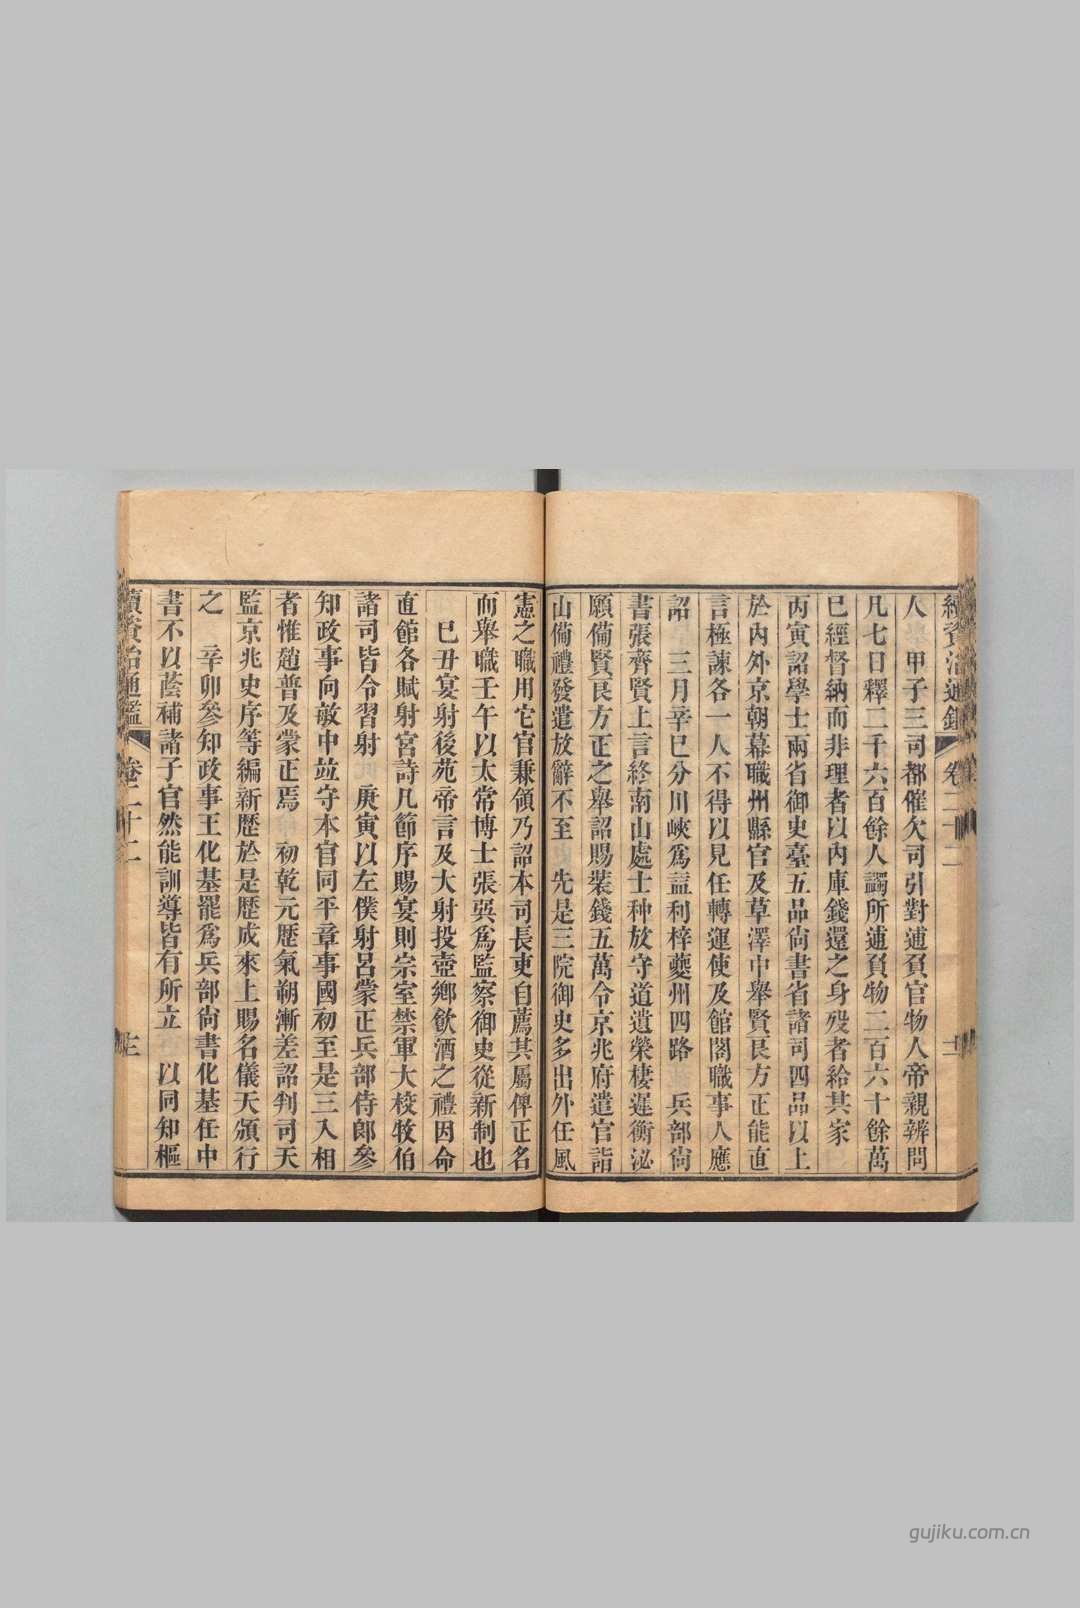 續資治通鑑 卷二十二
人 甲子三司都催欠司引對逋負官物人帝親辨問
凡七日釋二千六百餘人蠲所逋負物二百六十餘萬
已經督納而非理者以內庫錢還之身歿者給其家
丙寅詔學士兩省御史臺五品尙書省諸司四品以上
於內外京朝幕職州縣官及草澤中舉賢良方正能直
言極諫各一人不得以見任轉運使及館閣職事人應
詔 三月辛巳分川峽爲益利梓夔州四路 兵部尙
書張齊賢上言終南山處士种放守道遺榮棲遲衡泌
願備賢良方正之舉詔賜裝錢五萬令京兆府遣官詣
山備禮發遣放辭不至 先是三院御史多出外任風
憲之職用它官兼領乃詔本司長吏自薦其屬俾正名
而舉職壬午以太常博士張巽爲監察御史從新制也
己丑宴射後苑帝言及大射投壺鄉飮酒之禮因命
直館各賦射宮詩凡節序賜宴則宗室禁軍大校牧伯
諸司皆令習射 庚寅以左僕射呂蒙正兵部侍郎參
知政事向敏中竝守本官同平章事國初至是三入相
者惟趙普及蒙正焉 初乾元歷氣朔漸差詔判司天
監京兆史序等編新歷於是歷成來上賜名儀天頒行
之 辛卯參知政事王化基罷爲兵部尙書化基任中
書不以蔭補諸子官然能訓導皆有所立 以同知樞
續資治通鑑 卷二十二
gujiku.com.cn